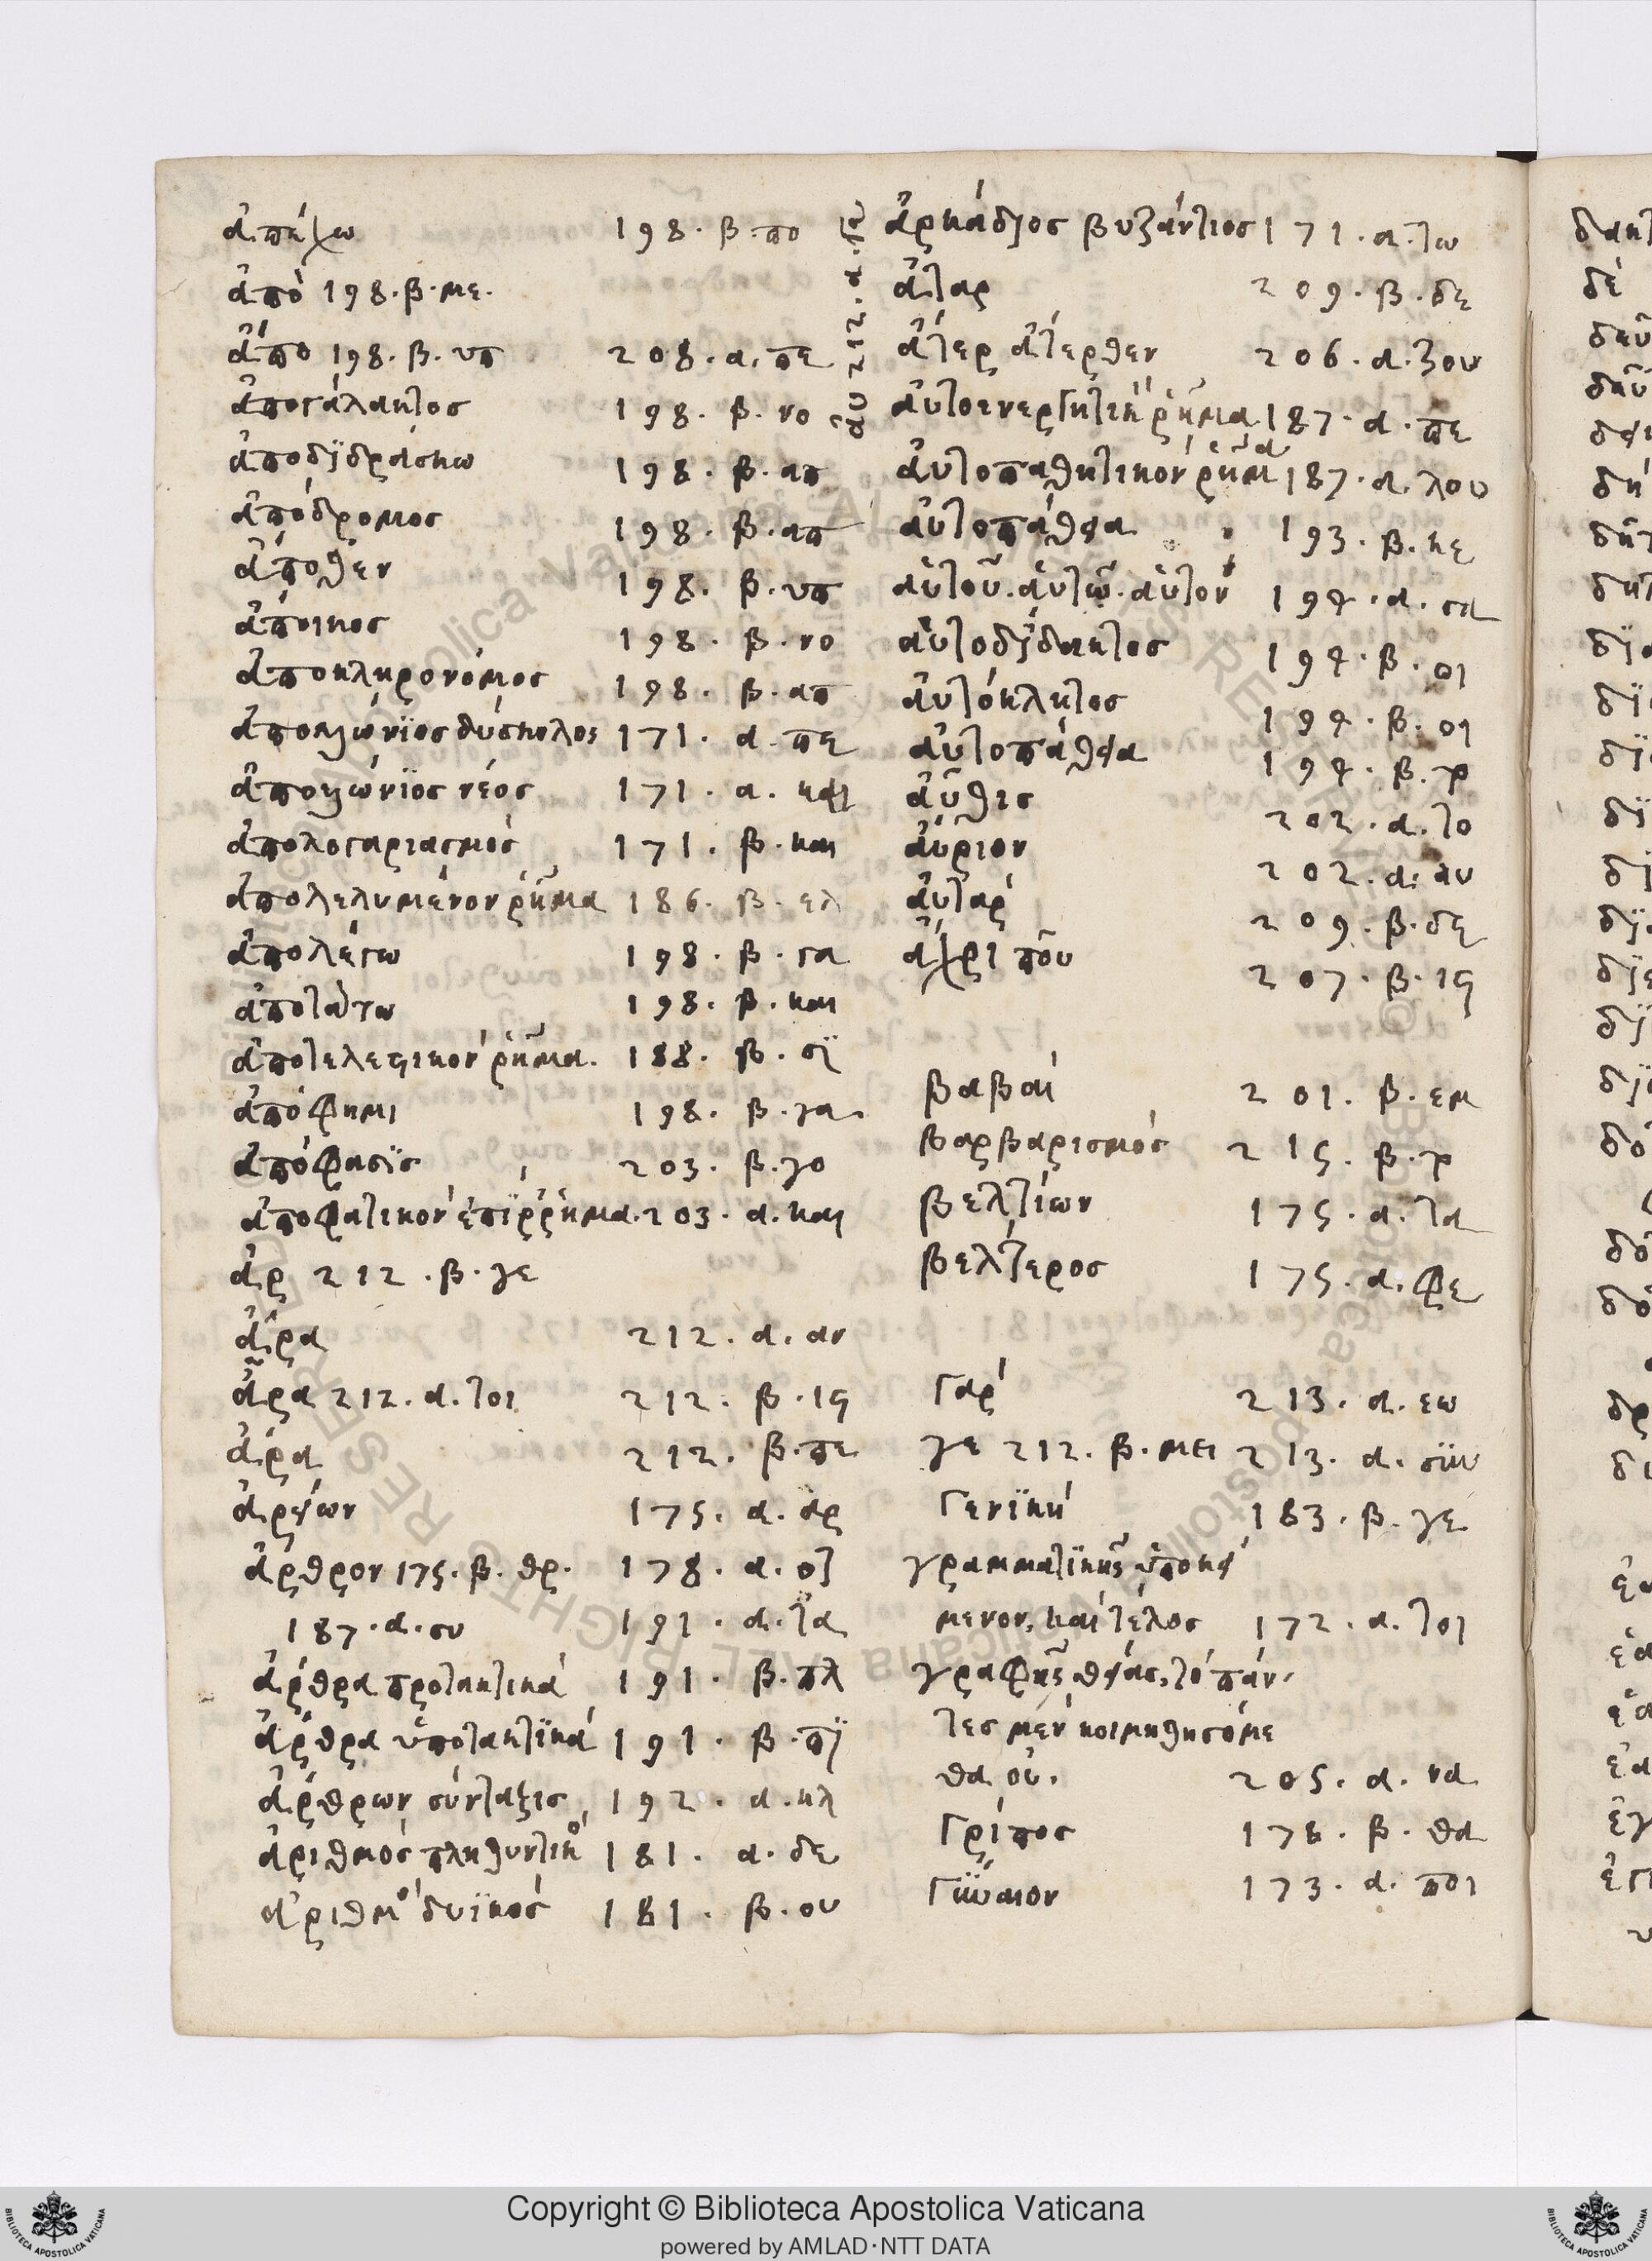 ἀπήχω 198. β. πο
ἀπὸ 198. β. με.
ἄπο 198. β. υπ 208. α. πε
ἀπογάλακτος 198. β. νο
ἀποδϊδράσκω 198. β. απ
ἀπόδρομος 198. β. απ
ἄποθεν 198. β. υπ
ἄποικος 198. β. νο
ἀποκληρονόμος 198. β. απ
ἀπολλώνϊος δύσκολος 171. α. πε
ἀπολλώνϊος νέος 171. α.
ἀπολογαριασμός 171. β. και
ἀπολελυμένον ῥῆμα 186. β. ελ
ἀπολέγω 198. β. γα
ἀποτάττω 198. β. και
ἀποτελεστικόν ῥῆμα. 188. β. σϊ
ἀπόφημι 198. β. γα
ἀπόφασϊς 203. β. γο
ἀποφατικόν ἐπίῤῥημα. 203. α. και
ἄρ 212. β. γε
ἄρα 212. α. αν
ἆρα 212. α. τοι 212. β. ιϛ
ἀρά 212. β. πε
ἀρείων 175. α. αρ
ἄρθρον 175. β. θρ. 178. α.
187. α. συ 191. α. τα
ἄρθρα προτακτικά 191. β. πλ
ἄρθρα ὑποτακτϊκά 191. β. πϊ
ἄρθρων σύνταξις 192. α. κλ
ἀριθμός πληθυντικό 181. α. δε
ἀριθμό δυϊκός 181. β. ου
αυ 212. α.
ἀρκάδϊος βυζάντιος 171. α. τω
ἀτάρ 209. β. δε
ἄτερ ἄτερθεν 206. α. ζου
αὐτοενεργητική ῥῆμα 187. α. πε
αὐτοπαθητικόν ῥῆμα 187. α. λου
αὐτοπάθεια 193. β. κε
αὑτοῦ. αὑτῷ. αὑτόν 194. α. γα
αὐτοδΐδακτος 194. β. οι
αὐτόκλητος 194. β. οι
αὐτοπάθεια 194. β. τρ
αὖθις 202. α. το
αὔριον 202. α. αυ
αὐτάρ 209. β. δε
ἄχρι που 207. β. ιϛ
βαβαί 201. β. εμ
βαρβαρισμός 215. β. τρ
βελτίων 175. α. τα
βέλτερος 175. α. φε
Γάρ 213. α. εω
γε 212. β. μει 213. α. σϋν
Γενϊκή 183. β. γε
γραμματϊκῆς ὑποκεί
μενον, καί τέλος 172. α. τοι
γραφῆς θείας, τό πάν-
τες μέν κοιμηθησόμε
θα οὐ. 205. α. να
Γρίπος 178. β. θα
Γϋναιον 173. α. ποι